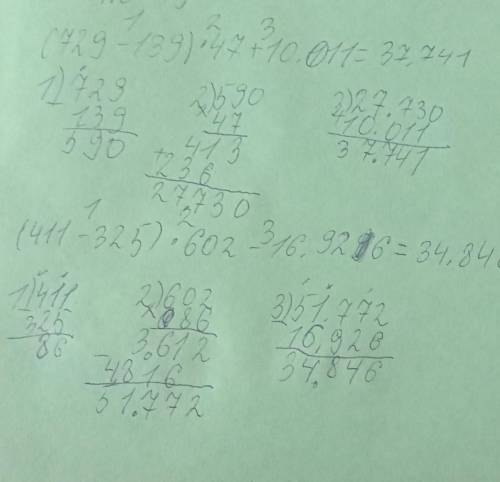 (729 - 139) · 47 + 10.011 = 37.741
1) 729
139
590
2) 590
× 47
413
+ 236
27730
3) 27.730
+ 10.011
37.741
(411 - 325) · 602 - 16.926 = 34.84
1) 411
325
86
2) 602
× 86
3.612
4816
51.772
3) 51.772
16.926
34.846